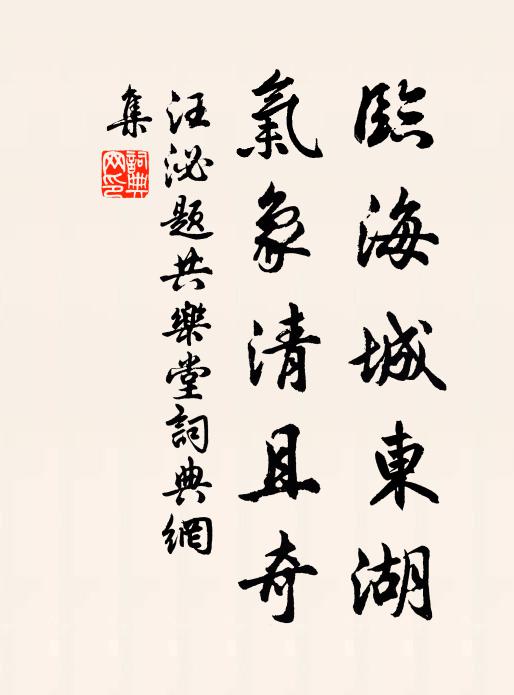 臨海城東湖
氣象清且奇
汪泌題共樂堂詞典網
集
詞典網印